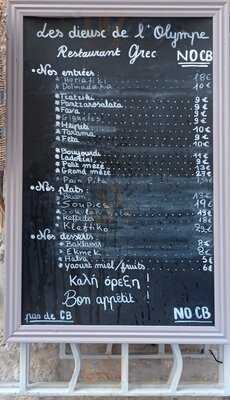 Les dieux de l'Olympe
Restaurant Grec NO CB
• Nos entrées
Horiatiki 18€
Dolmadakia 10€
Tzatziki 9€
Pantzarosalata 9€
Fava 9€
Gigantes 9€
Htipiti 9€
Tarama 10€
Feta 9€
Bouyourdi 11€
Ladotiri 9€
Petit mézé 13€
Grand mézé 23€
Pain Pita
• Nos plats
19€
Soupies 19€
Souvlaki
Keftedes 18€
Kleftiko
• Nos desserts
Baklavas 8€
Ekmek 8€
Halva 5€
yaourt miel/fruits 6€
Καλή όρεξη !
Bon appétit !
pas de CB NO CB